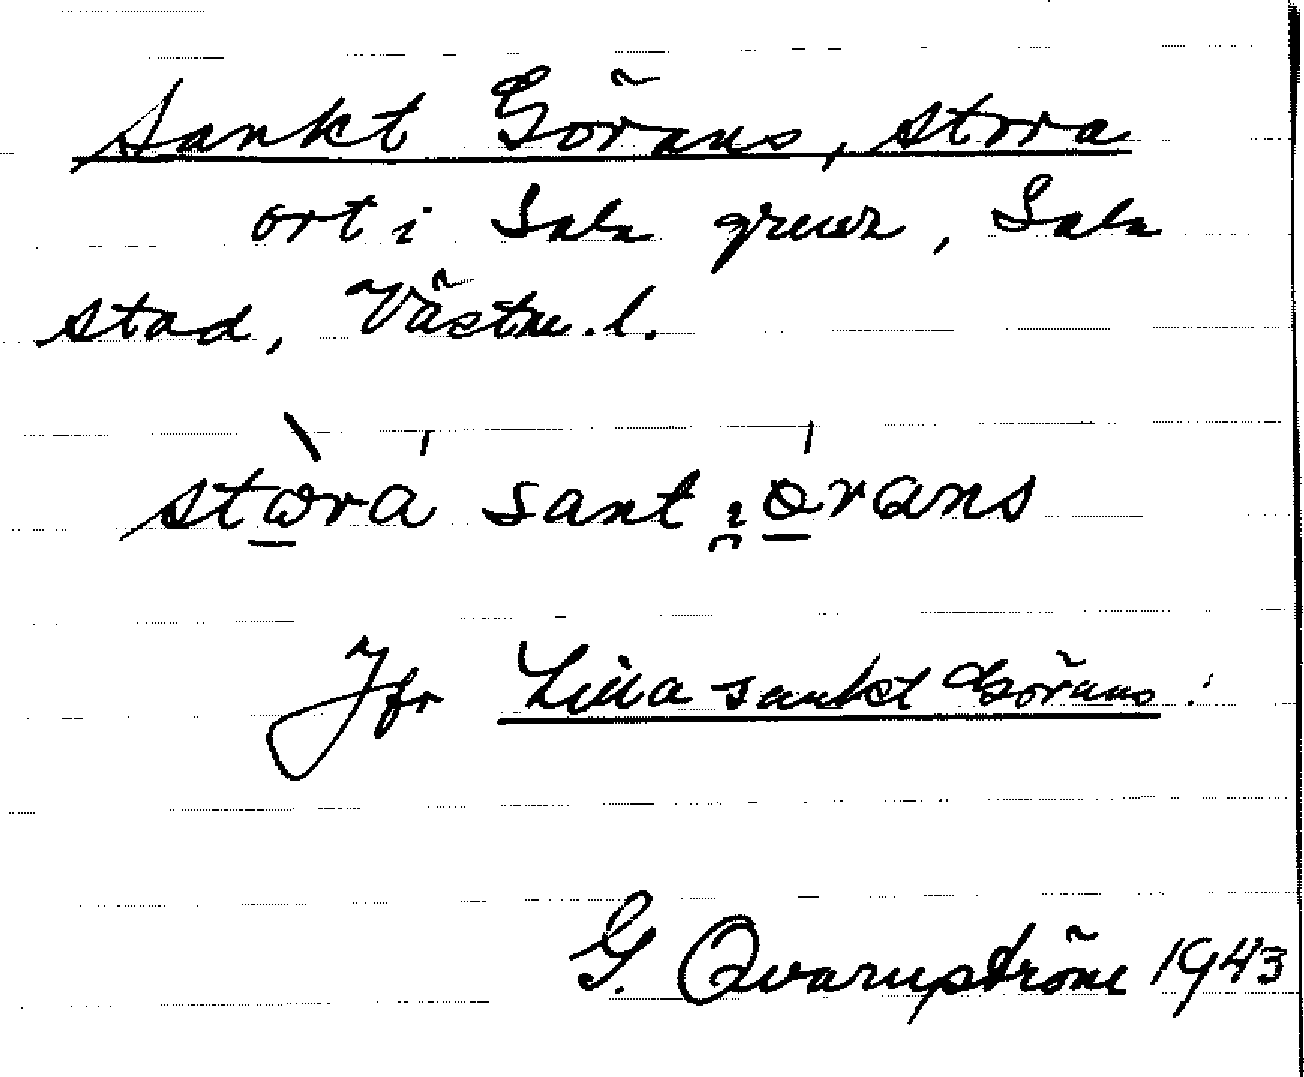 Sankt Görans, stora
ort i Sala gruva, Sala
stad, Västm. l.
stωra sant jörans
Jfr Lilla sankt Görans.
G. Qvarnström 1943